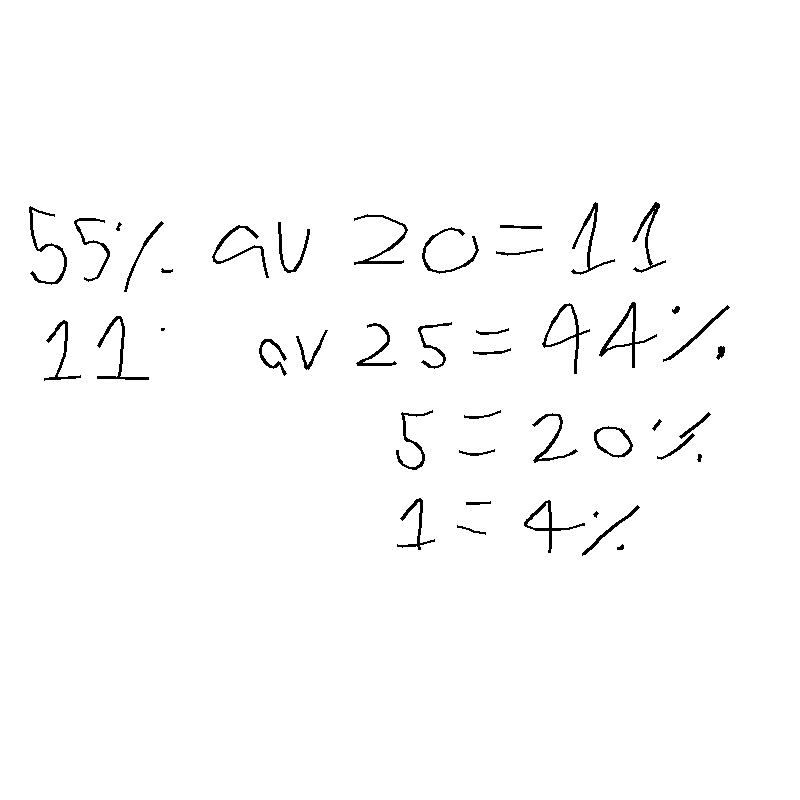 55% av 20 = 11
11 av 25 = 44%
5 = 20%
1 = 4%